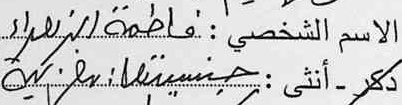 الاسم الشخصي : فاطمة الزهراء
ذكر - أنثى : جنسيتها : مغربية